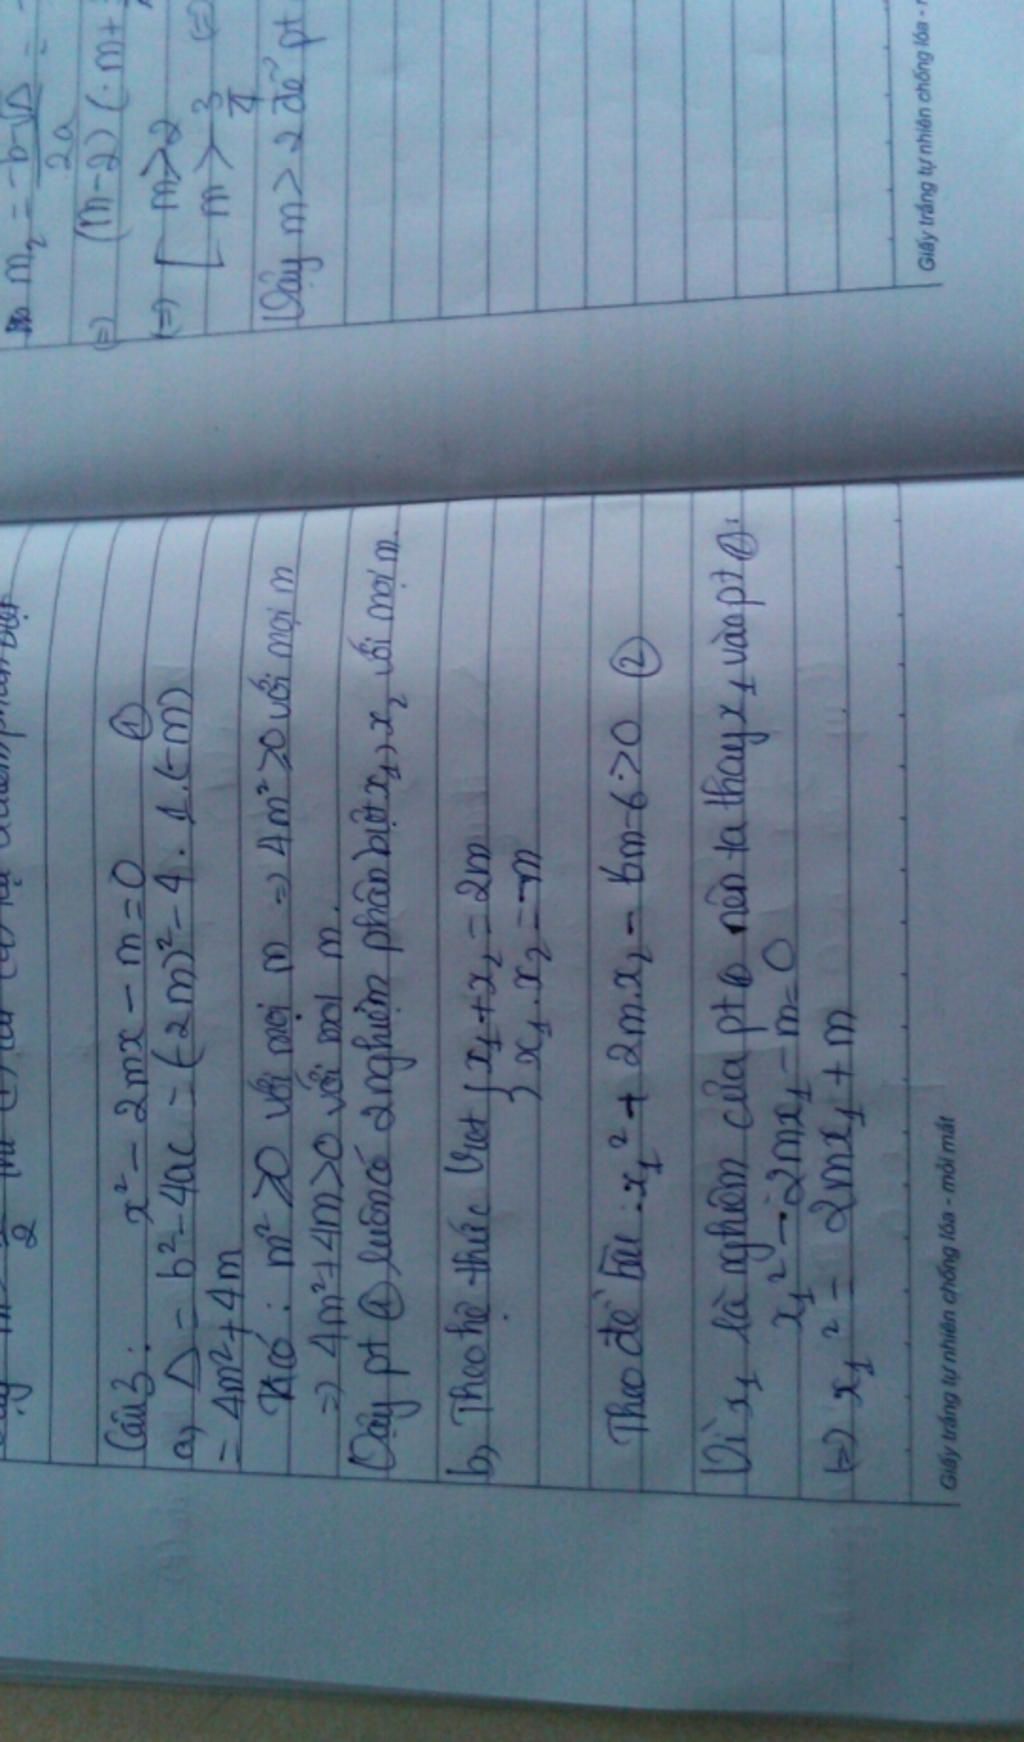 Câu 3: x² - 2mx - m = 0 ①
a, Δ = b² - 4ac = (-2m)² - 4.1.(-m)
= 4m² + 4m
Ta có: m² > 0 với mọi m => 4m² > 0 với mọi m
=> 4m² + 4m > 0 với mọi m.
Vậy pt ① luôn có 2 nghiệm phân biệt x₁, x₂ với mọi m.
b, Theo hệ thức Viet { x₁ + x₂ = 2m
x₁ . x₂ = -m
Theo đề bài: x₁² + 2mx₂ - 6m - 6 > 0 ②
Vì x₁ là nghiệm của pt ① nên ta thay x₁ vào pt ①:
x₁² - 2mx₁ - m = 0
(=) x₁² = 2mx₁ + m
Giấy trắng tự nhiên chống lóa - mỏi mắt
m₂ = -b-√Δ / 2a =
(=) (m-2)(.m+
(=) [ m > 2
m > 3/4 (=)
Vậy m > 2 để pt
Giấy trắng tự nhiên chống lóa -